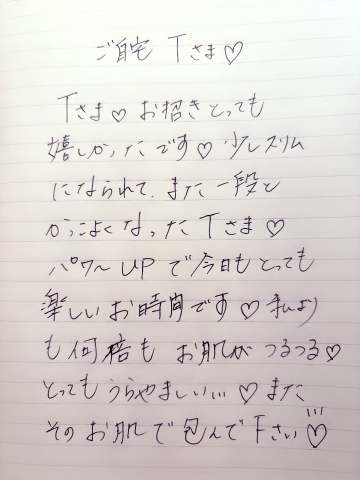 ご自宅 Tさま♡
Tさま♡お招きとっても
嬉しかったです♡少しスリム
になられて、また一段と
かっこよくなったTさま♡
パワーUPで今日もとっても
楽しいお時間です♡私より
も何倍もお肌がつるつる♡
とってもうらやましい…♡また
そのお肌で包んで下さい♡